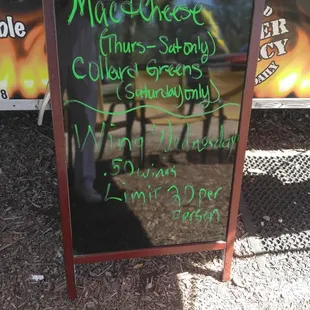 Mac & Cheese
(Thurs - Sat only)
Collard Greens
(Saturday only)
Wing Wednesday
.50 wings
Limit 30 per
person
ble
8
ER
CY
DAILY